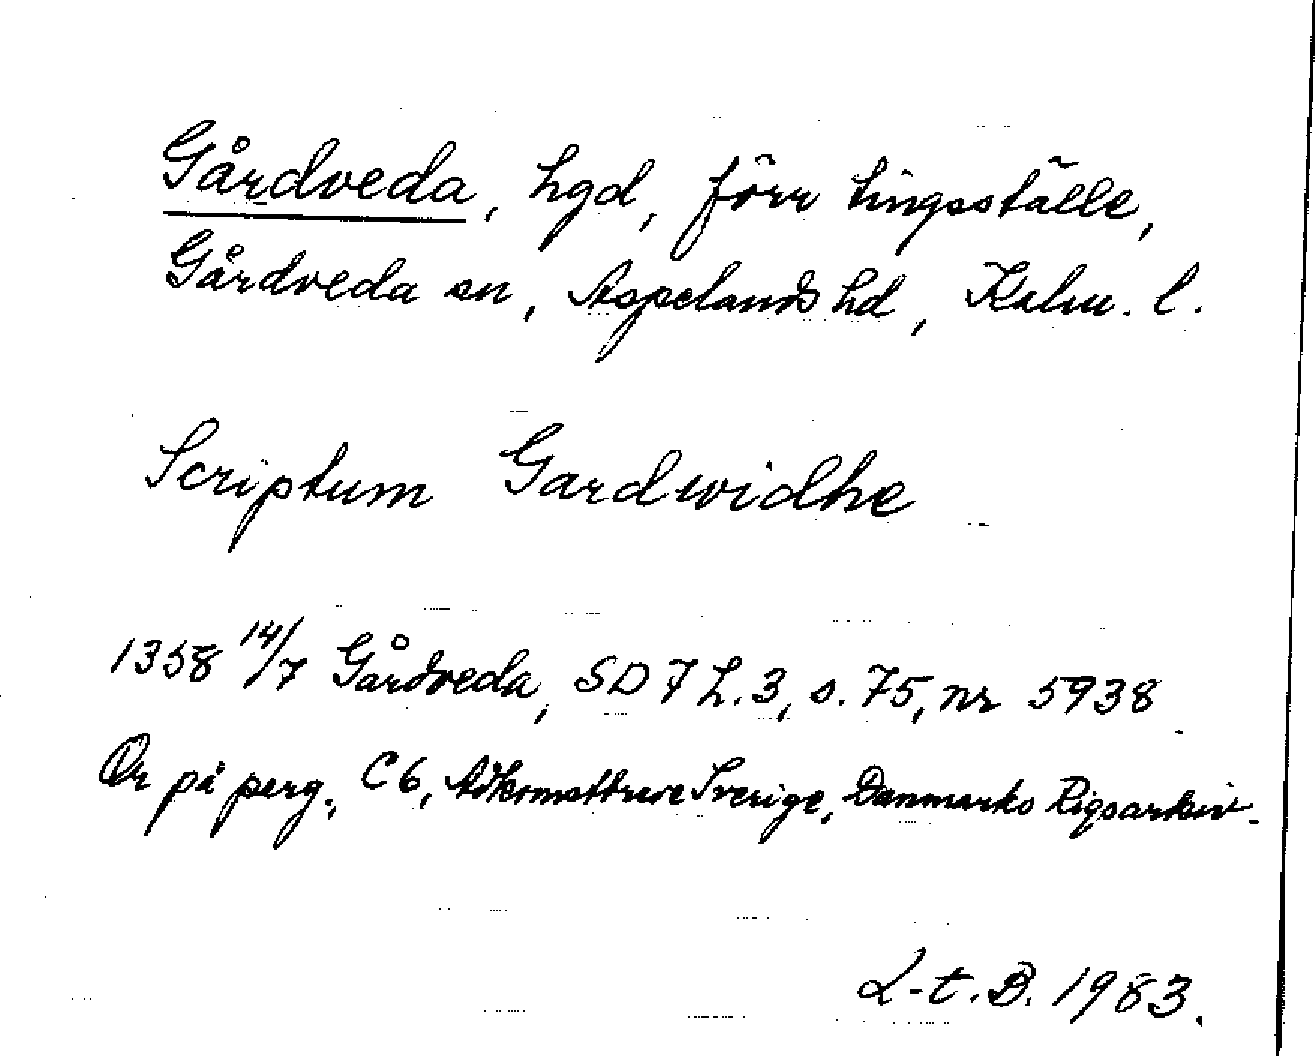 Gårdveda, hgd, förr tingsställe,
Gårdveda sn, Aspelands hd, Kalm. l.
Scriptum Gardwidhe
1358 14/7 Gårdveda, SD 7 h. 3, s. 75, nr 5938
Or på perg., C6, Sverige, Danmarks Rigsarkiv.
L-t. B. 1983.